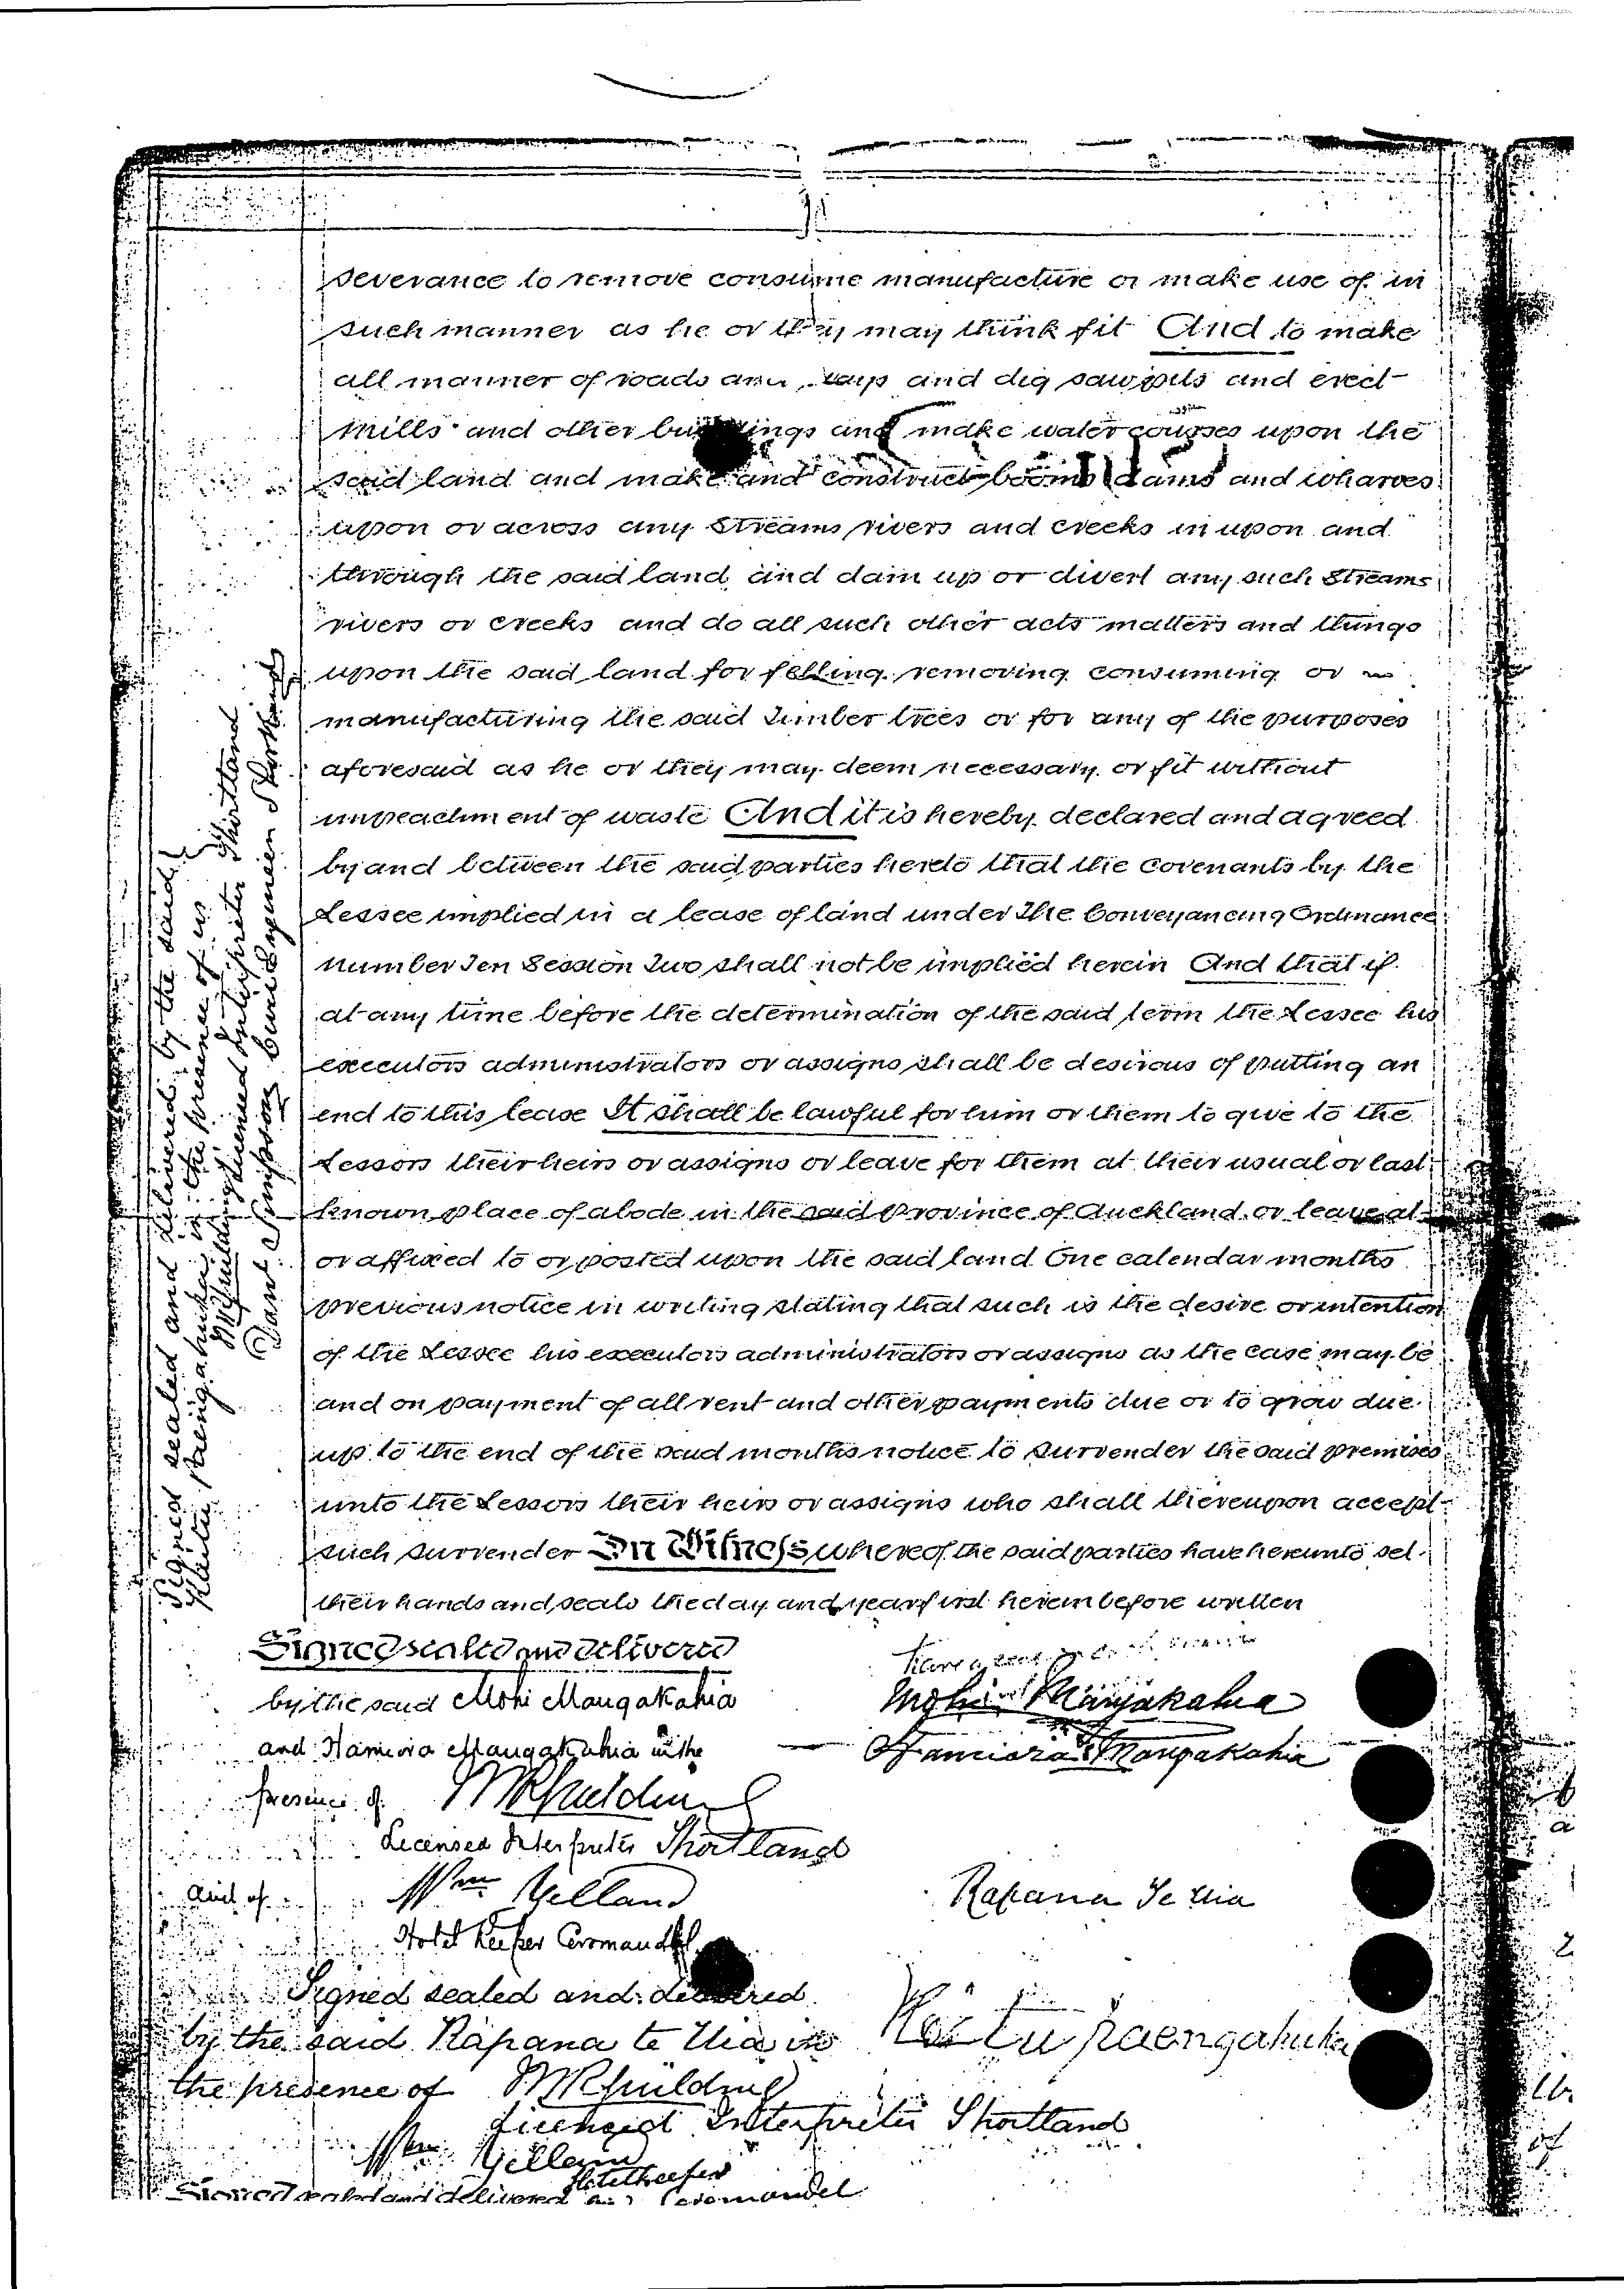 severance to remove consume manufacture or make use of in
such manner as he or they may think fit And to make
all manner of roads and ways and dig sawpits and erect
mills and other buildings and make water courses upon the
said land and make and construct booms dams and wharves
upon or across any Streams rivers and creeks in upon and
through the said land and dam up or divert any such Streams
rivers or creeks and do all such other acts matters and things
upon the said land for felling removing consuming or
manufacturing the said timber trees or for any of the purposes
aforesaid as he or they may deem necessary or fit without
impeachment of waste And it is hereby declared and agreed
by and between the said parties hereto that the covenants by the
Lessee implied in a lease of land under The Conveyancing Ordinance
number Ten Session Two shall not be implied herein And that if
at any time before the determination of the said term the Lessee his
executors administrators or assigns shall be desirous of putting an
end to this lease It shall be lawful for him or them to give to the
Lessors their heirs or assigns or leave for them at their usual or last
known place of abode in the said Province of Auckland or leave at
or affixed to or posted upon the said land One calendar months
previous notice in writing stating that such is the desire or intention
of the Lessee his executors administrators or assigns as the case may be
and on payment of all rent and other payments due or to grow due
up to the end of the said months notice to surrender the said premises
unto the Lessors their heirs or assigns who shall thereupon accept
such surrender In Witness whereof the said parties have hereunto set
their hands and seals the day and year first herein before written
Signed sealed and delivered
by the said Mohi Mangakahia
and Hamiora Mangakahia in the
presence of
Licensed Interpreter Shortland
and of Wm
Hotel Keeper Coromandel
Mohi Mangakahia
Hamiora Mangakahia
Rapana Te Uia
Signed sealed and delivered
by the said Rapana te Uia in
the presence of
Licensed Interpreter Shortland
Wm
Hotelkeeper
Signed sealed and delivered Coromandel
Signed sealed and delivered by the said
paengahuka in the presence of us
Licensed Interpreter Shortland
Simpson